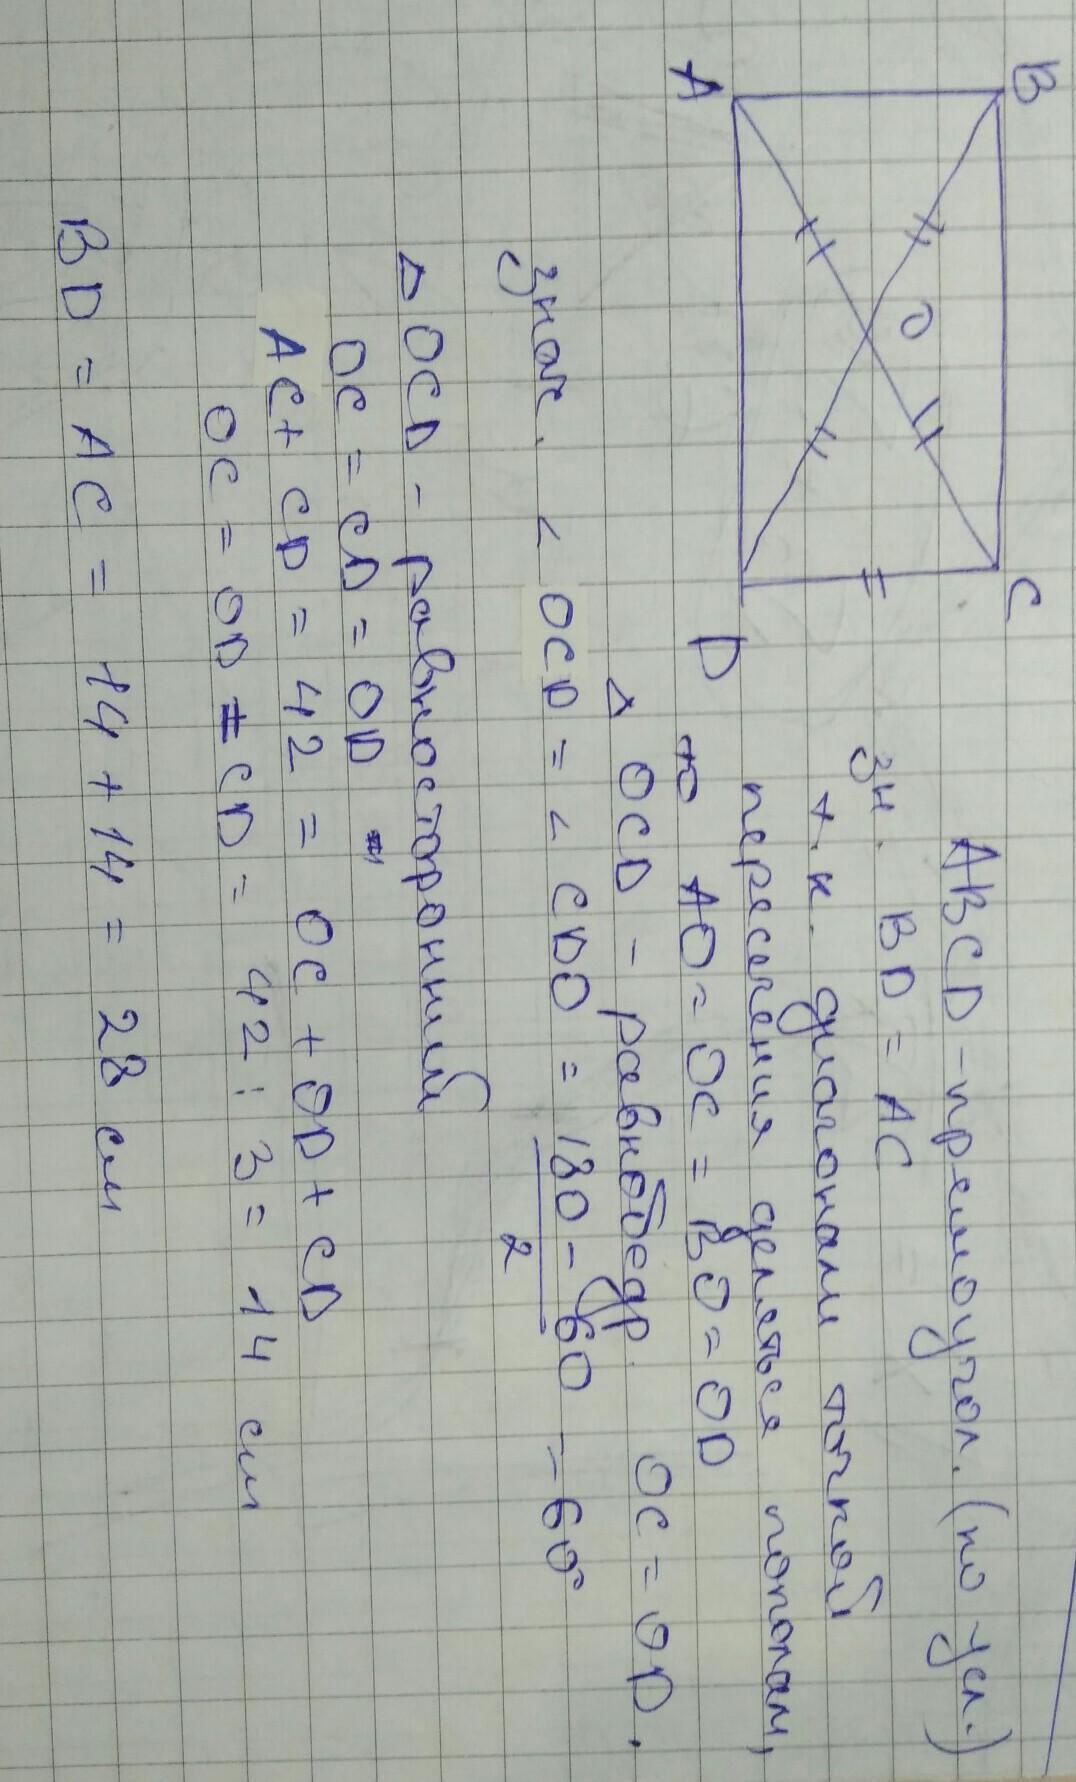 B
C
A
O
D
ABCD - прямоугол. (по усл.)
зн. BD = AC
т.к. диагонали точкой
пересечения деляться попалам,
то AO = OC = BO = OD
Δ OCD - равнобедр. OC = OD.
знач. < OCD = < CDO = 180 - 60 / 2 = 60°
Δ OCD - равносторонний
OC = CD = OD
AC + CD = 42 = OC + OD + CD
OC = OD = CD = 42 : 3 = 14 см
BD = AC = 14 + 14 = 28 см